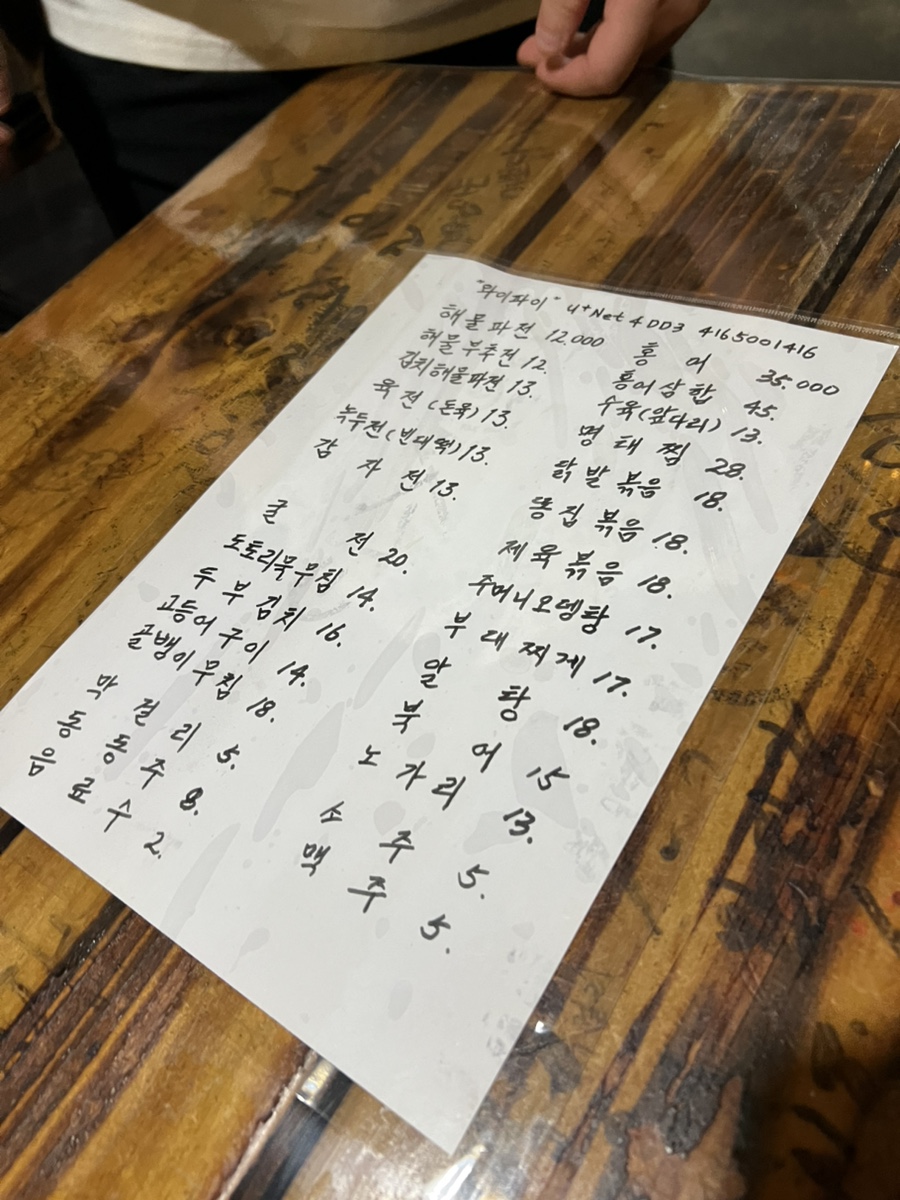 "와이파이" U+Net 4DD3 4165001416
해물파전 12,000
해물부추전 12.
김치해물파전 13.
육전(돈육) 13.
녹두전(빈대떡) 13.
감자전 13.
굴전 20.
도토리묵무침 14.
두부김치 16.
고등어구이 14.
골뱅이무침 18.
막걸리 5.
동동주 8.
음료수 2.
홍어 35,000
홍어삼합 45.
수육(앞다리) 13.
명태찜 28.
닭발볶음 18.
똥집볶음 18.
제육볶음 18.
주머니오뎅탕 17.
부대찌게 17.
알탕 18.
북어 15
노가리 13.
소주 5.
맥주 5.